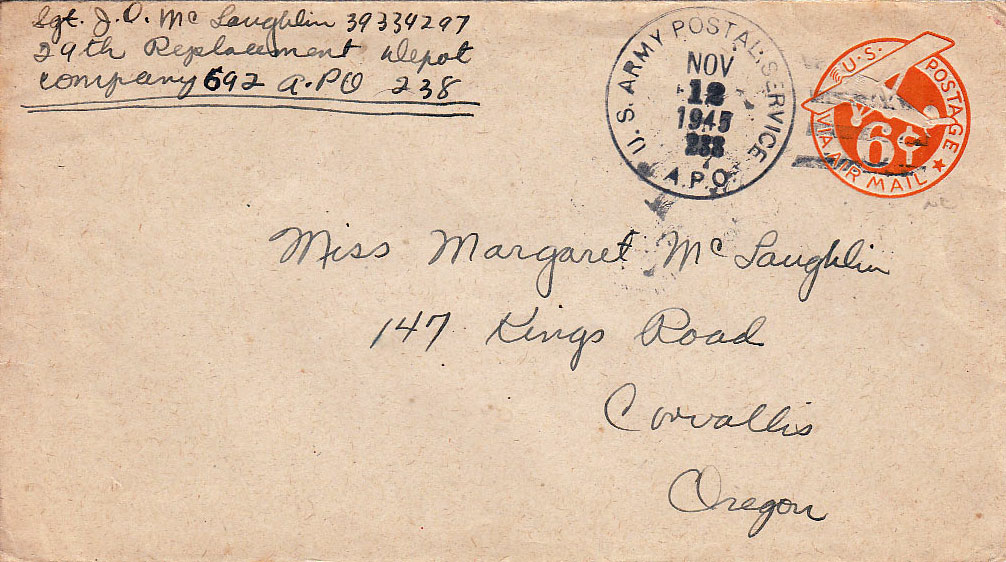 Sgt. J. O. McLaughlin 39334297
29th Replacement Depot
Company 692 A.PO 238
U. S. ARMY POSTAL SERVICE
NOV
12
1945
A.P.O.
U.S. POSTAGE
6¢
VIA AIR MAIL
Miss Margaret McLaughlin
147 Kings Road
Corvallis
Oregon